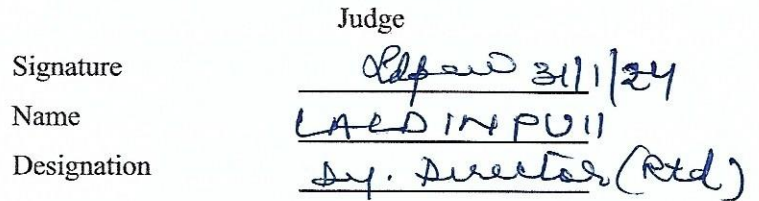 Judge
Signature 31/1/24
Name LALDINPUII
Designation Dy. Director (Rtd)